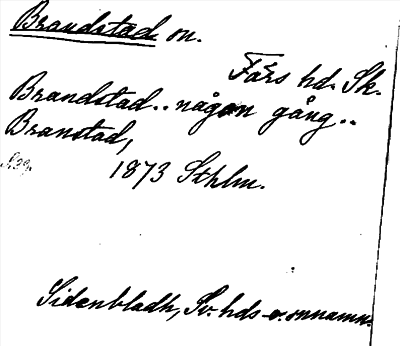 Brandstad sn.
Färs hd. Sk.
Brandstad.. någon gång..
Branstad,
1873 Sthlm.
Sidenbladh, Sv. hds- o. snnamn.